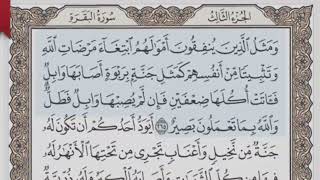 الجزء الثالث
سورة البقرة
وَمَثَلُ ٱلَّذِينَ يُنفِقُونَ أَمْوَٰلَهُمُ ٱبْتِغَآءَ مَرْضَاتِ ٱللَّهِ
وَتَثْبِيتًا مِّنْ أَنفُسِهِمْ كَمَثَلِ جَنَّةٍۭ بِرَبْوَةٍ أَصَابَهَا وَابِلٌ
فَـَٔاتَتْ أُكُلَهَا ضِعْفَيْنِ فَإِن لَّمْ يُصِبْهَا وَابِلٌ فَطَلٌّ
وَٱللَّهُ بِمَا تَعْمَلُونَ بَصِيرٌ ٢٦٥ أَيَوَدُّ أَحَدُكُمْ أَن تَكُونَ لَهُۥ
جَنَّةٌ مِّن نَّخِيلٍ وَأَعْنَابٍ تَجْرِى مِن تَحْتِهَا ٱلْأَنْهَٰرُ لَهُۥ
فِيهَا مِن كُلِّ